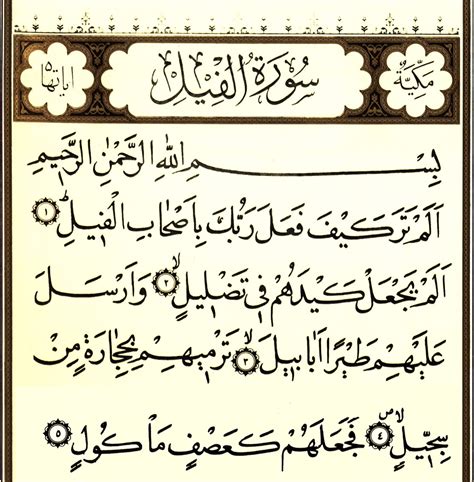 مَكِّيَّةٌ سُورَةُ الْفِيلِ اٰيَاتُهَا ٥
بِسْمِ اللهِ الرَّحْمٰنِ الرَّحِيمِ
اَلَمْ تَرَ كَيْفَ فَعَلَ رَبُّكَ بِاَصْحَابِ الْفِيلِ ١
اَلَمْ يَجْعَلْ كَيْدَهُمْ فِي تَضْلِيلٍ ٢ وَاَرْسَلَ
عَلَيْهِمْ طَيْرًا اَبَابِيلَ ٣ تَرْمِيهِمْ بِحِجَارَةٍ مِنْ
سِجِّيلٍ ٤ فَجَعَلَهُمْ كَعَصْفٍ مَأْكُولٍ ٥